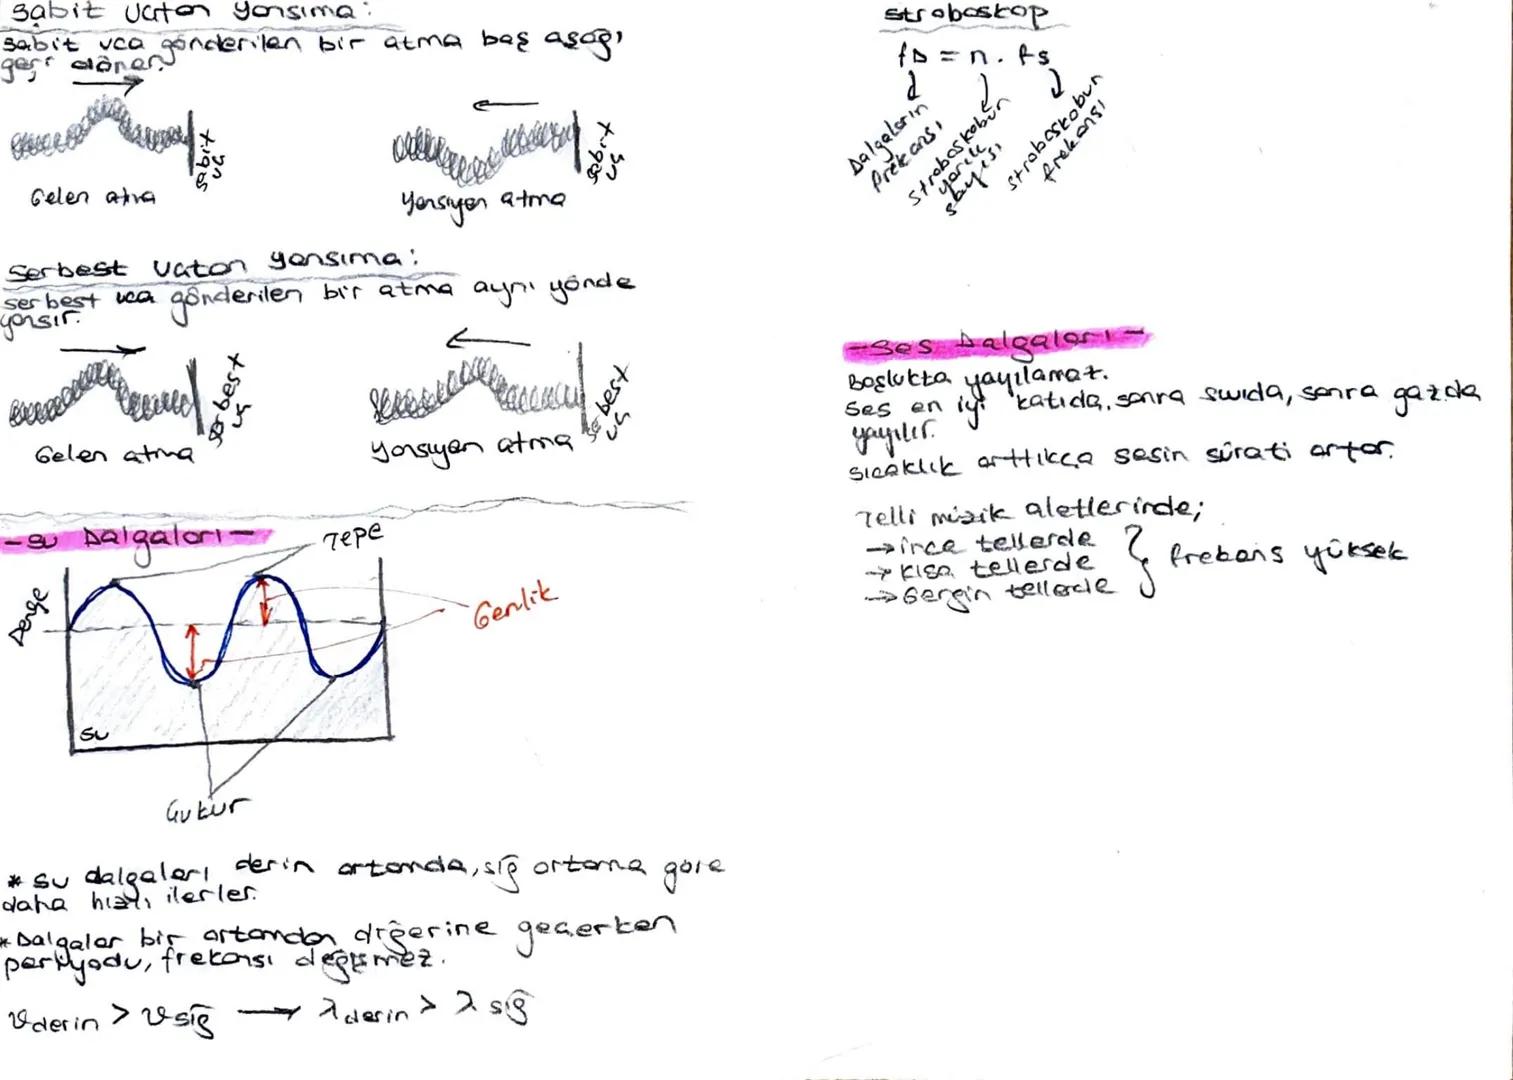 Sabit Uctan Yansıma:
Sabit uca gönderilen bir atma baş aşağı
geri döner.
Sabit
uç
Gelen atma
Sabit
uç
Yansıyan atma
Serbest Uctan yansıma:
serbest uca gönderilen bir atma aynı yönde
yansır.
Serbest
uç
Gelen atma
Serbest
uç
Yansıyan atma
-Su Dalgaları-
Tepe
Denge
Genlik
Su
Çukur
* Su dalgaları derin ortamda, sığ ortama göre
daha hızlı ilerler.
* Dalgalar bir ortamdan diğerine geçerken
periyodu, frekansı değişmez.
ϑderin > ϑsığ → λderin > λ sığ
stroboskop
fD = n . fs
Dalgaların
frekansı
stroboskobun
yarık
sayısı
stroboskobun
frekansı
-Ses Dalgaları-
Boşlukta yayılamaz.
Ses en iyi katıda, sonra sıvıda, sonra gazda
yayılır.
Sıcaklık arttıkça sesin sürati artar.
Telli müzik aletlerinde;
→ince tellerde
→ Kısa tellerde
→Gergin tellerde
} frekans yüksek